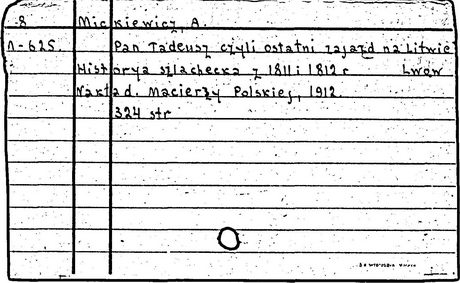 8 Mickiewicz, A.
Λ-625. Pan Tadeusz czyli ostatni zajazd na Litwie
Historya szlachecka z 1811 i 1812 r Lwow
Nakład. Macierzy Polskiej, 1912.
324 str